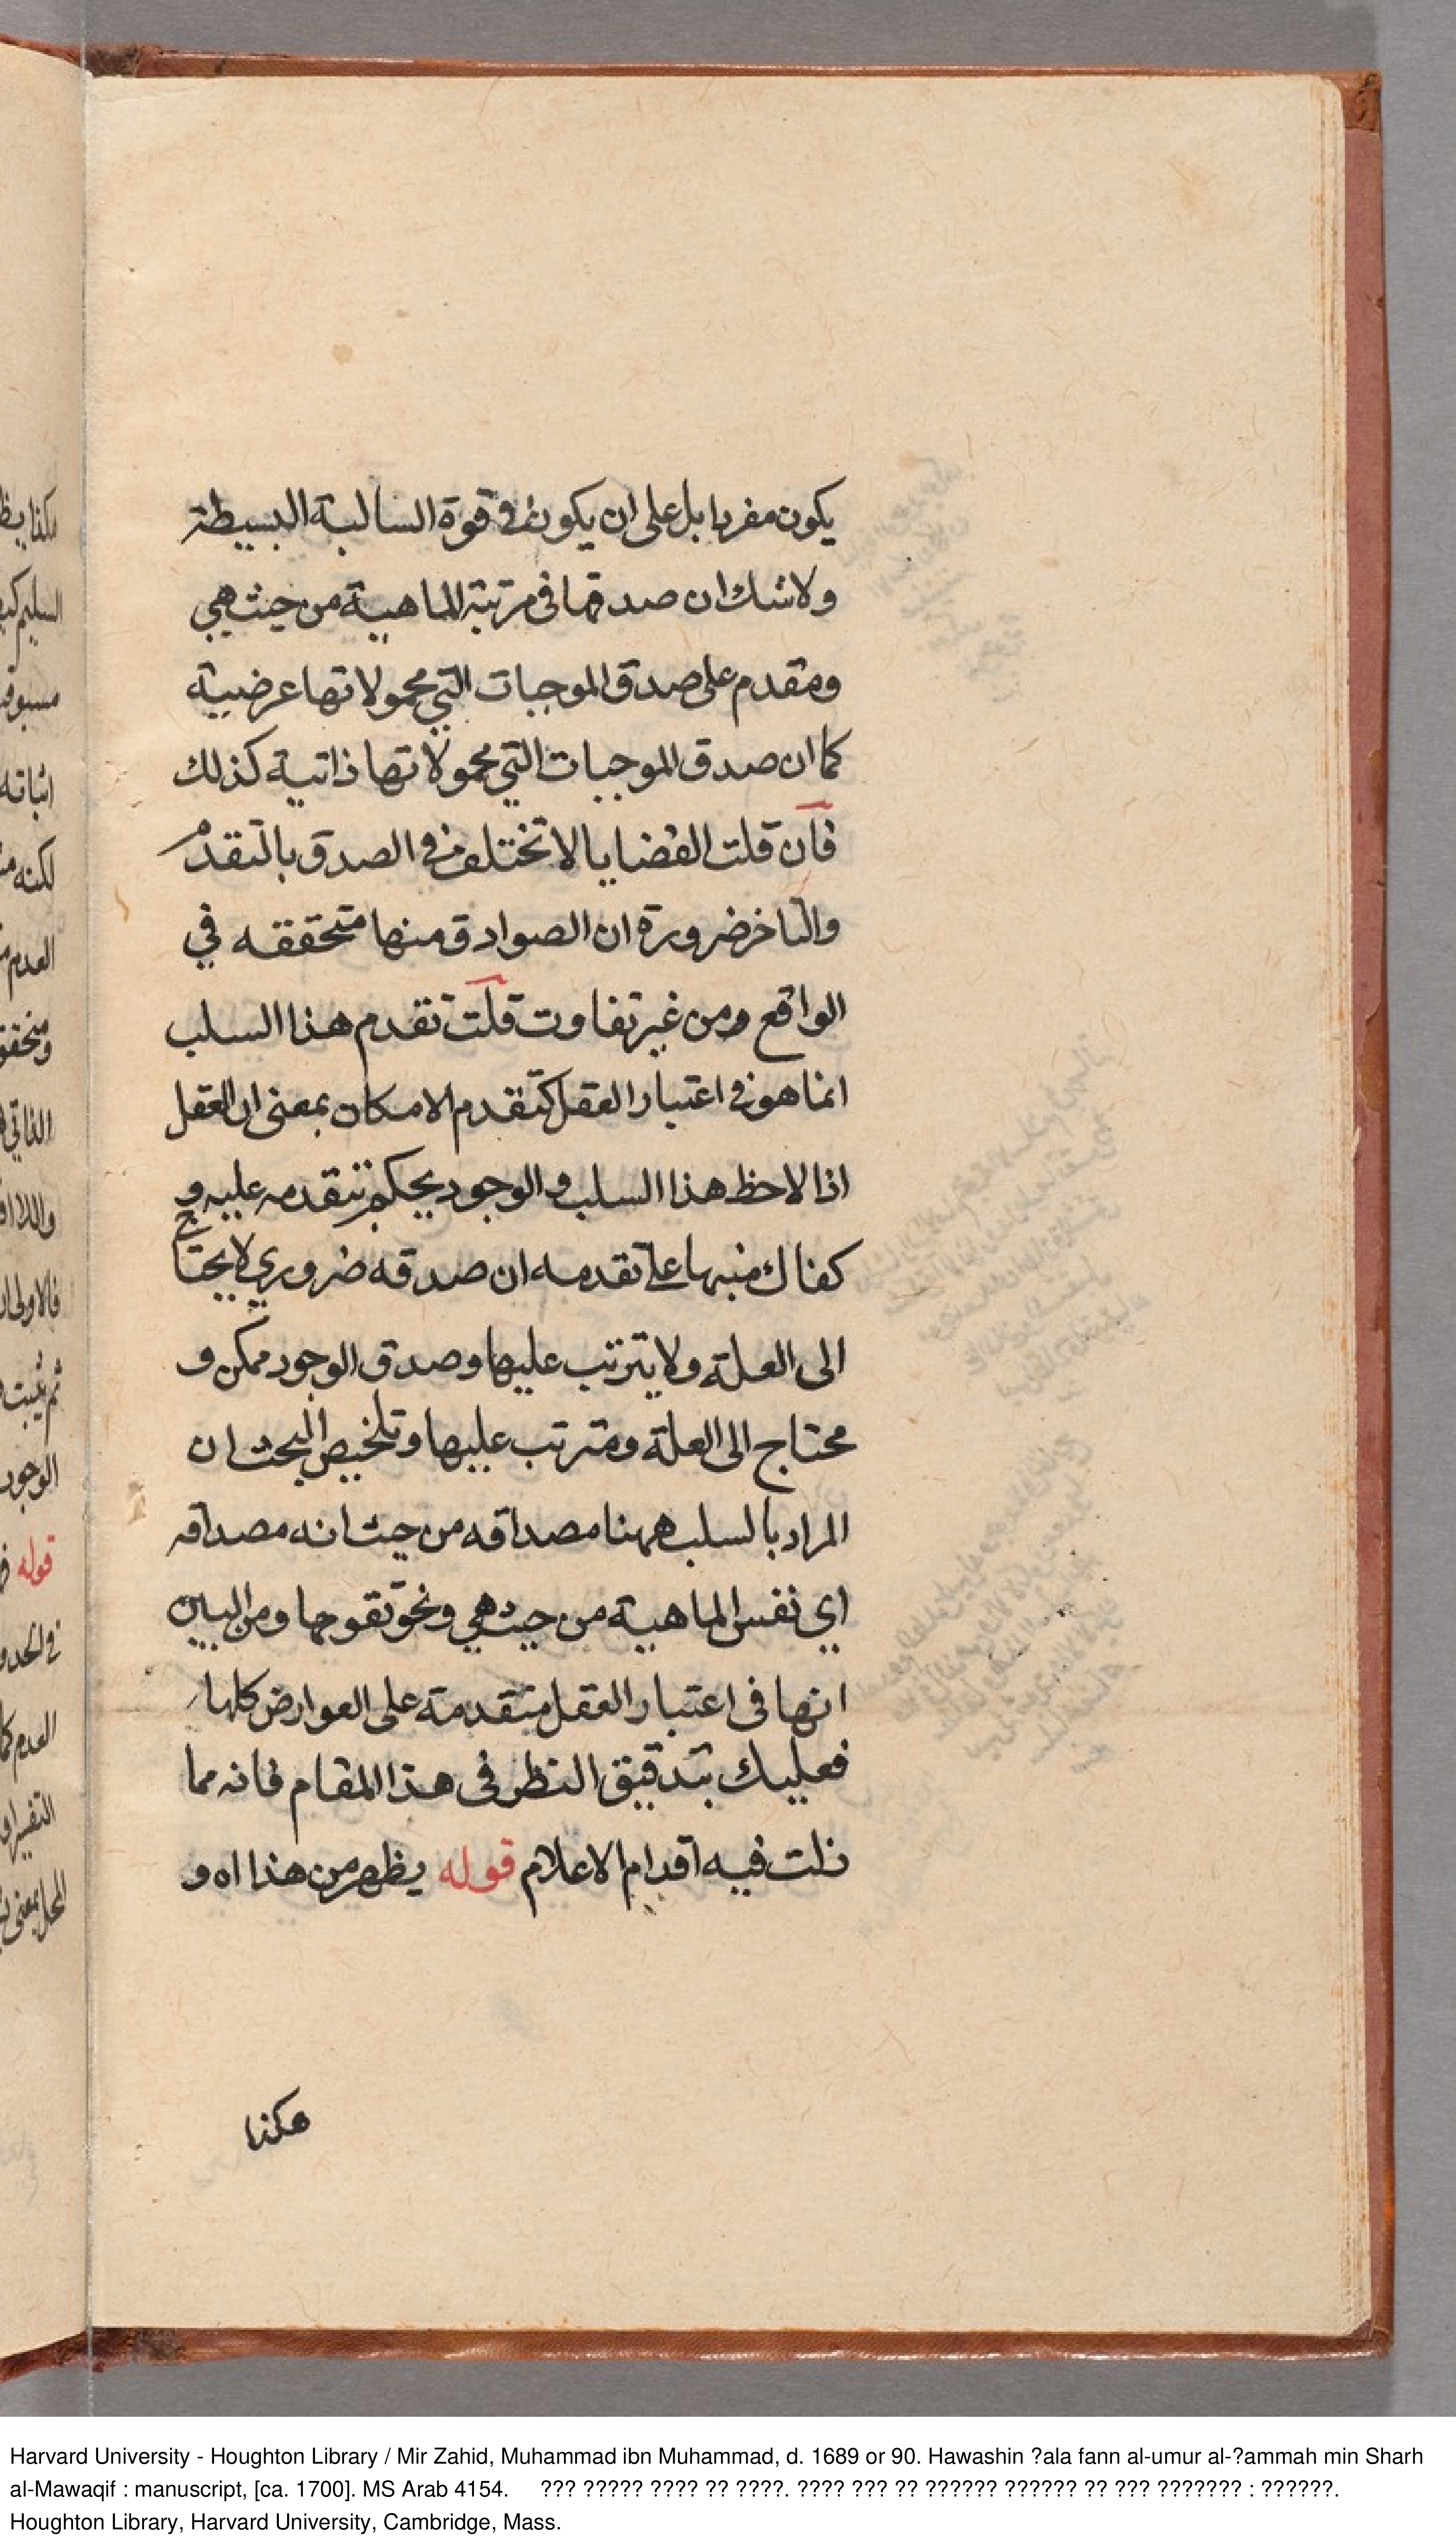 يكون مفردا بل على ان يكون في قوة السالبة البسيطة
ولا شك ان صدقها في مرتبة الماهية من حيث هي
ومتقدم على صدق الموجبات التي محمولاتها عرضية
كما ان صدق الموجبات التي محمولاتها ذاتية كذلك
فان قلت القضايا لا تختلف في الصدق بالتقدم
والتاخر ضرورة ان الصوادق منها متحققه في
الواقع ومن غير تفاوت قلت تقدم هذا السلب
انما هو في اعتبار العقل كتقدم الامكان بمعنى ان العقل
اذا لاحظ هذا السلب والوجود يحكم بتقدمه عليه و
كفاك منبها على تقدمه ان صدقه ضروري لا يحتاج
الى العلة ولا يترتب عليها وصدق الوجود ممكن و
محتاج الى العلة ومترتب عليها وتلخيص البحث ان
المراد بالسلب ههنا مصداقه من حيث انه مصداقه
اي نفس الماهية من حيث هي ونحو تقومها ومن البين
انها في اعتبار العقل متقدمة على العوارض كلها
فعليك بتدقيق النظر في هذا المقام فانه مما
زلت فيه اقدام الاعلام قوله يظهر من هذا اه و
هكذا
Harvard University - Houghton Library / Mir Zahid, Muhammad ibn Muhammad, d. 1689 or 90. Hawashin ?ala fann al-umur al-?ammah min Sharh
al-Mawaqif : manuscript, [ca. 1700]. MS Arab 4154. ??? ????? ???? ?? ????. ???? ??? ?? ?????? ?????? ?? ??? ??????? : ??????.
Houghton Library, Harvard University, Cambridge, Mass.